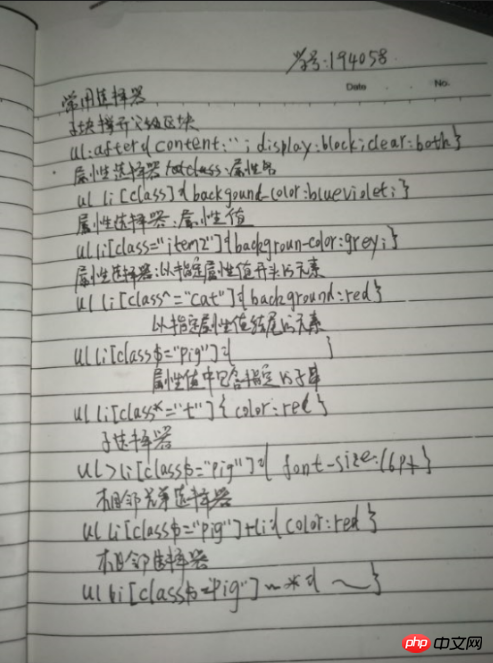 学号:194058
Date No.
常用选择器
子块撑开父级区块
ul:after{content:'';display:block;clear:both}
属性选择器 class:属性名
ul li[class]{backgound-color:blueviolet;}
属性选择器:属性值
ul li[class="item2"]{backgroun-color:grey;}
属性选择器:以指定属性值开头的元素
ul li[class^="cat"]{background:red}
以指定属性值结尾的元素
ul li[class$="pig"]{ }
属性值中包含指定的子串
ul li[class*="t"]{color:red}
子选择器
ul>li[class$="pig"]{font-size:16px}
相邻兄弟选择器
ul li[class$="pig"]+li{color:red}
相邻选择器
ul li[class$="pig"]~*{~}
php中文网